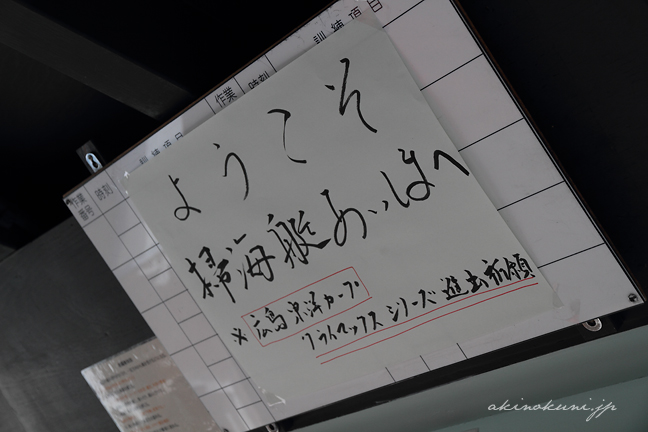 訓練項目
作業
時刻
訓練項目
作業
番号
時刻
ようこそ
掃海艇あいしまへ
※広島東洋カープ
クライマックスシリーズ進出祈願
akinokuni.jp